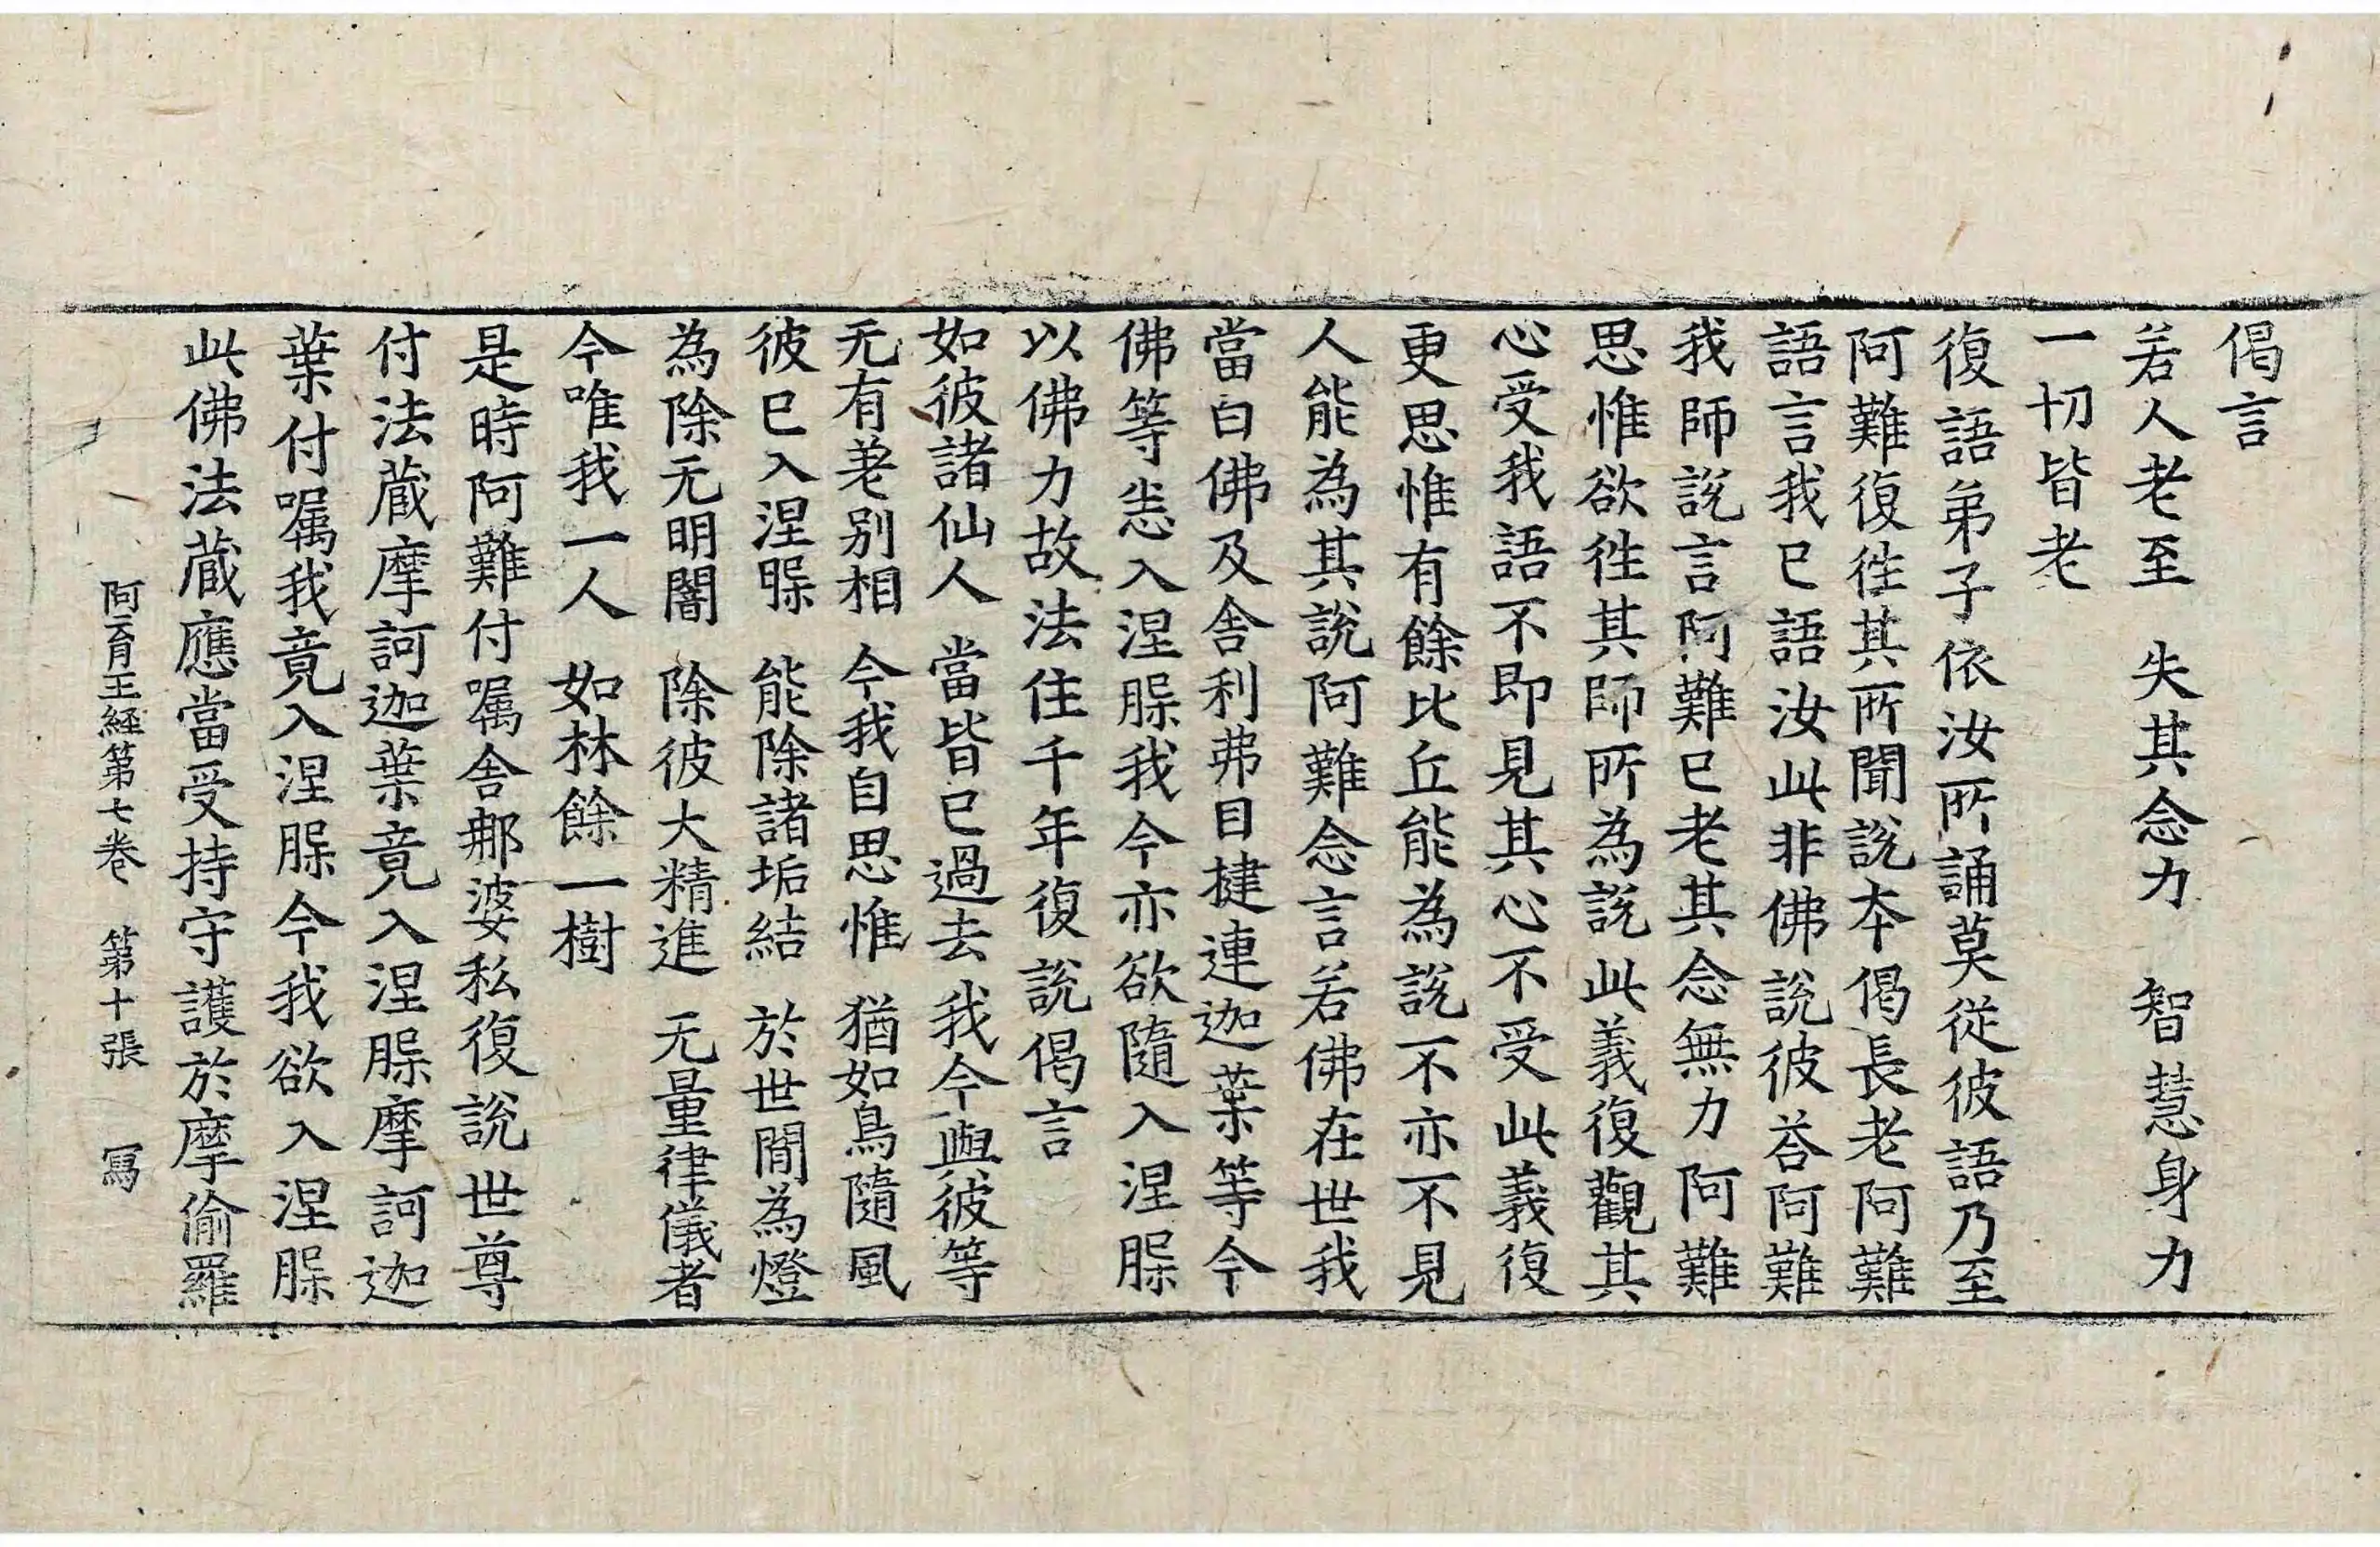 偈言
若人老至　失其念力　智慧身力
一切皆老
復語弟子依汝所誦莫從彼語乃至
阿難復徃其所聞說本偈長老阿難
語言我已語汝此非佛說彼荅阿難
我師說言阿難已老其念無力阿難
思惟欲徃其師所為說此義復觀其
心受我語不即見其心不受此義復
更思惟有餘比丘能為說不亦不見
人能為其說阿難念言若佛在世我
當白佛及舍利弗目揵連迦葉等今
佛等悉入涅槃我今亦欲隨入涅槃
以佛力故法住千年復說偈言
如彼諸仙人　當皆已過去　我今與彼等
无有差別相　今我自思惟　猶如鳥隨風
彼已入涅槃　能除諸垢結　於世間為燈
為除无明闇　除彼大精進　无量律儀者
今唯我一人　如林餘一樹
是時阿難付嘱舍那婆私復說世尊
付法蔵摩訶迦葉竟入涅槃摩訶迦
葉付嘱我竟入涅槃今我欲入涅槃
此佛法蔵應當受持守護於摩偷羅
阿育王経第七卷　第十張　冩